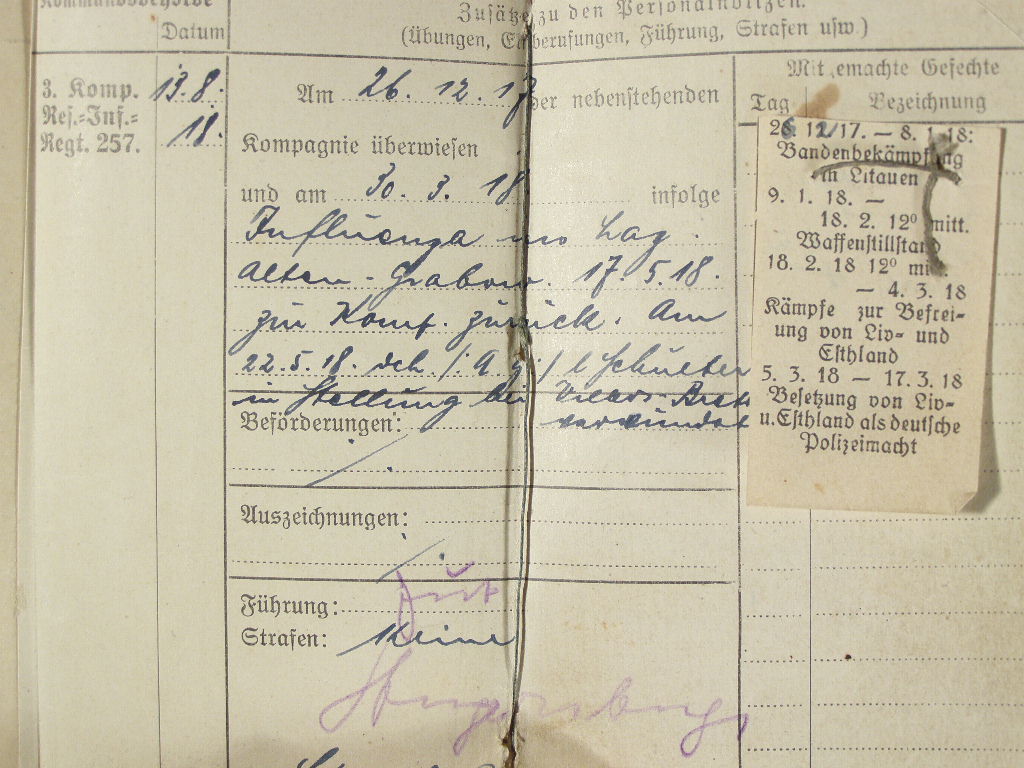 Kommandobehörde
Datum
Zusätze zu den Personalnotizen.
(Übungen, Einberufungen, Führung, Strafen usw.)
3. Komp.
Res.-Inf.-
Regt. 257.
13.8.
18.
Am 26. 12. 17 der nebenstehenden
Kompagnie überwiesen
und am 30. 3. 18 infolge
Influenza ins Laz.
Alten-Grabow. 17.5.18.
zur Komp. zurück. Am
22.5.18. dch /: A. G. :/ l Schulter
in Stellung bei
verwundet
Beförderungen:
Auszeichnungen:
Führung: Gut
Strafen: Keine
Mitgemachte Gefechte
Tag Bezeichnung
26. 12/17. — 8. 1. 18:
Bandenbekämpfung
in Litauen
9. 1. 18. —
18. 2. 12⁰ mitt.
Waffenstillstand
18. 2. 18 12⁰ mitt.
— 4. 3. 18
Kämpfe zur Befrei-
ung von Liv- und
Esthland
5. 3. 18 — 17. 3. 18
Besetzung von Liv-
u. Esthland als deutsche
Polizeimacht